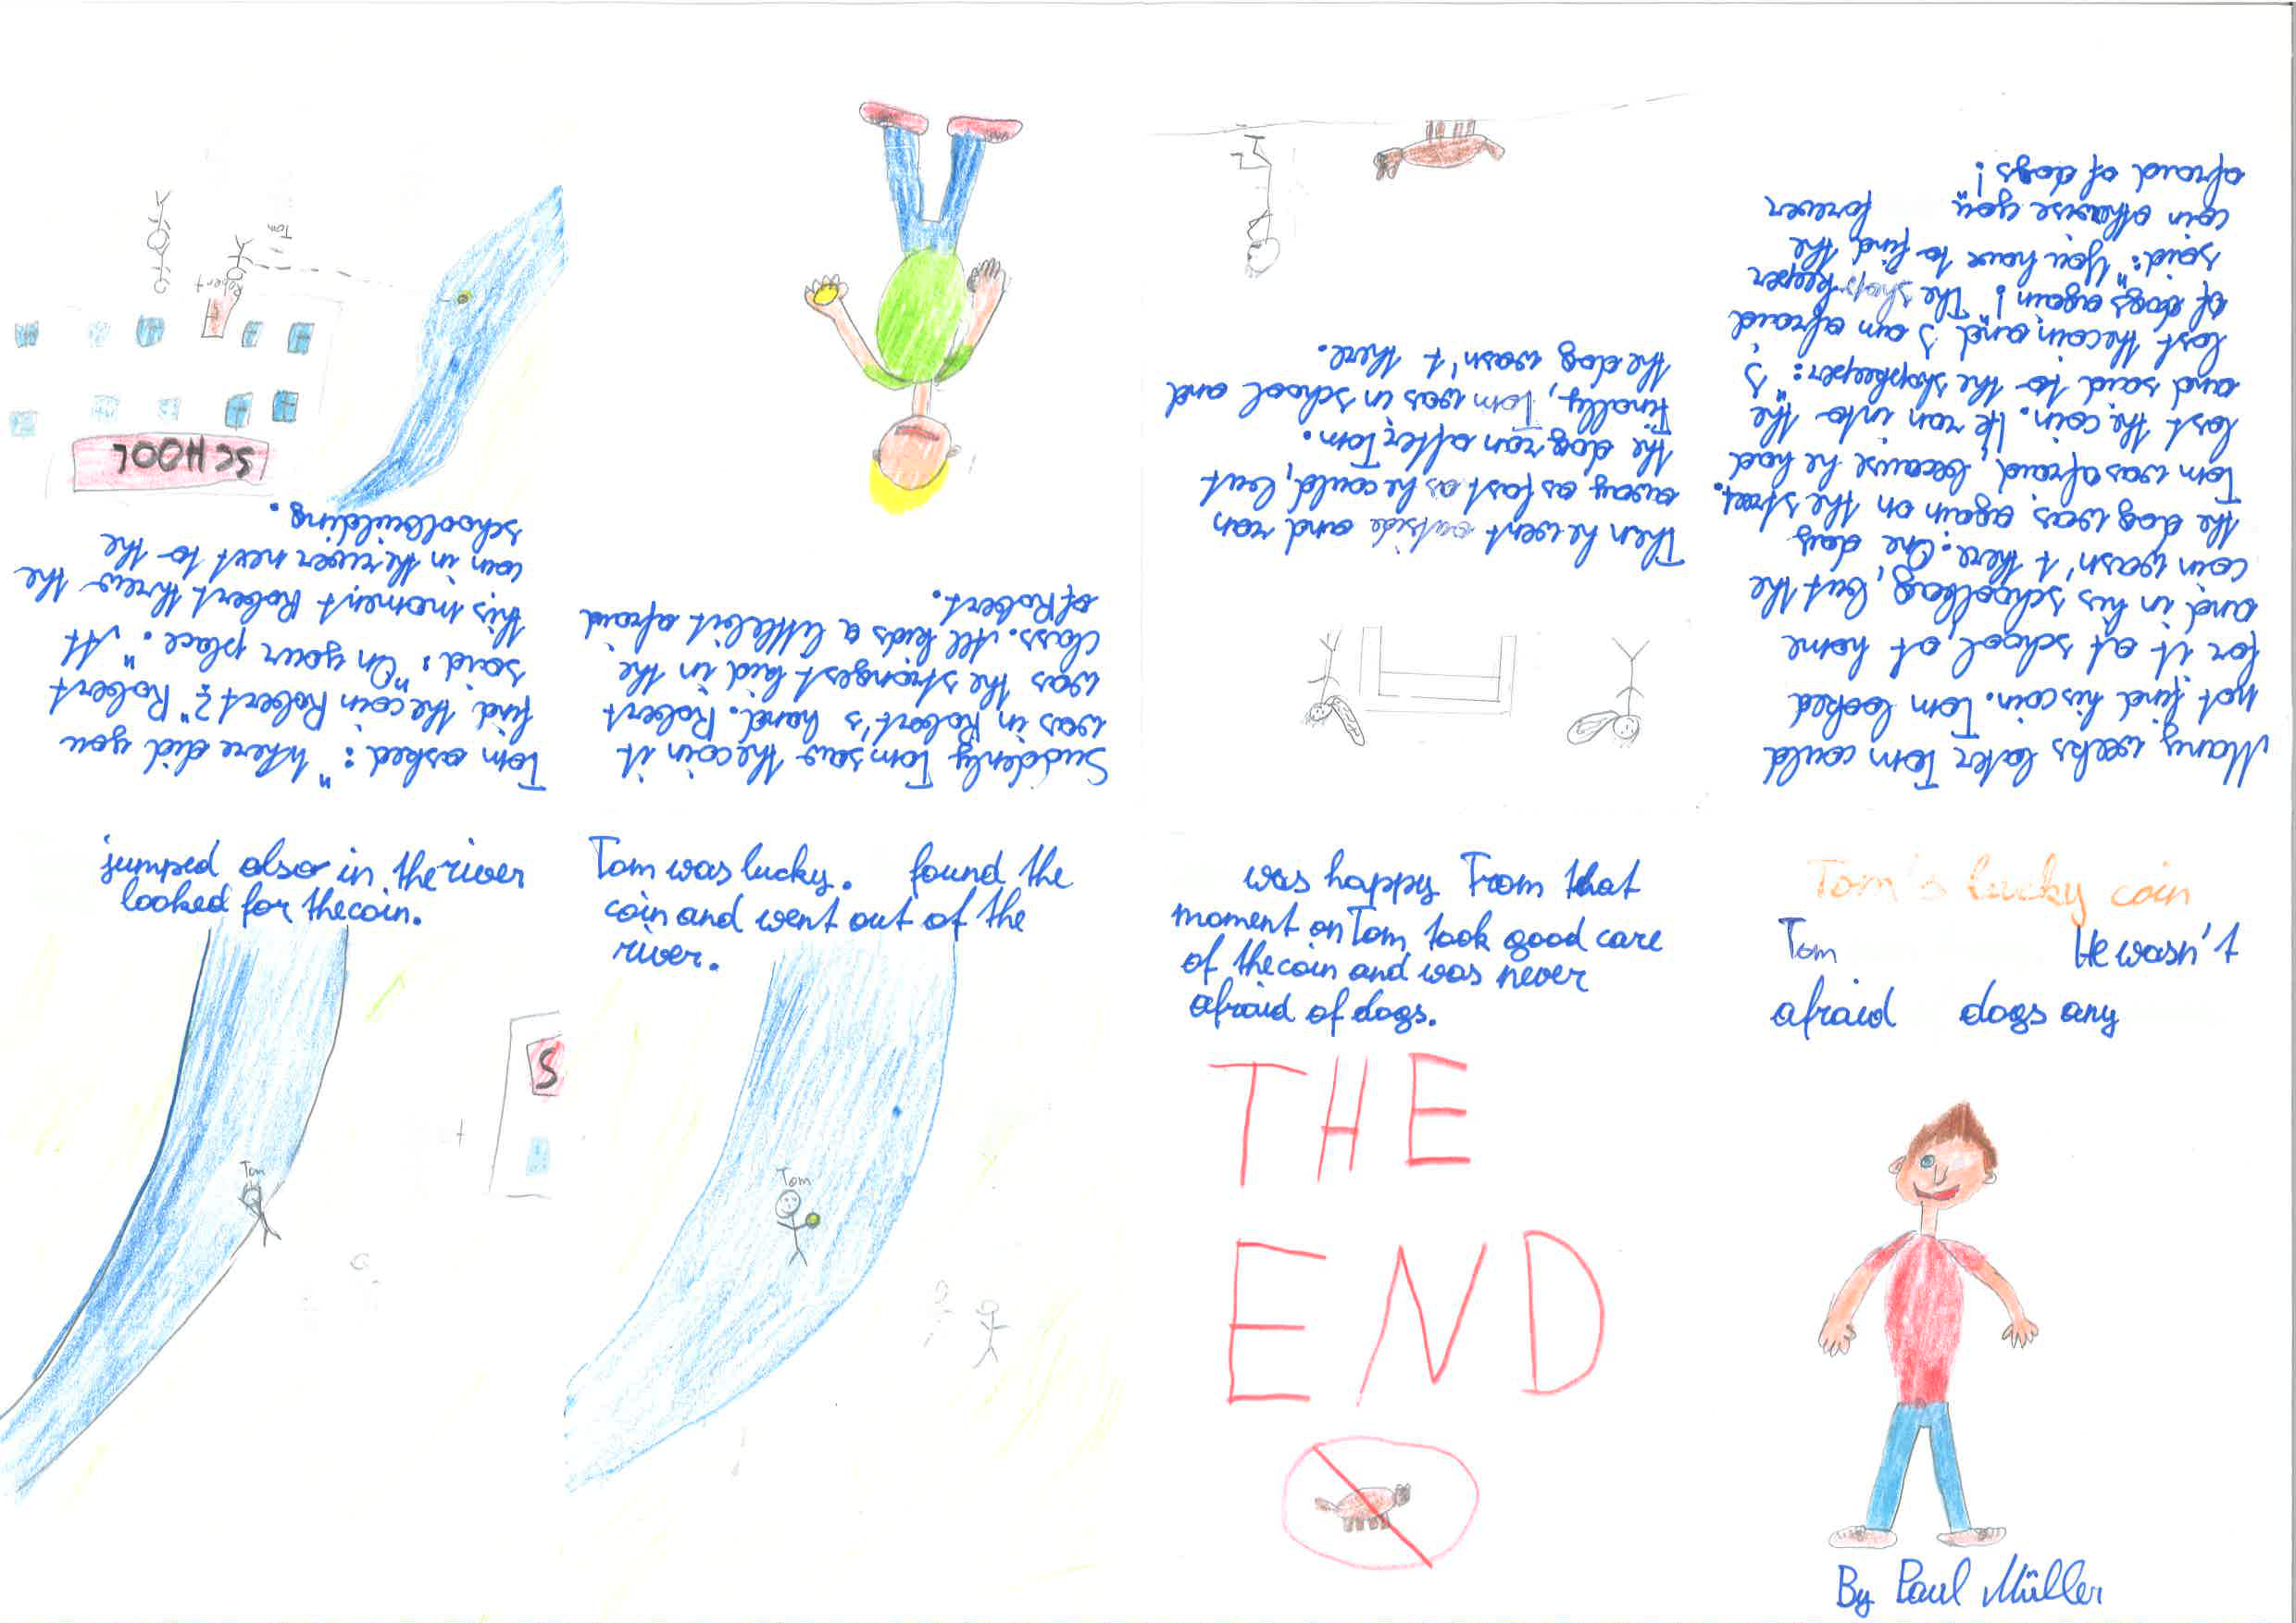 Tom's lucky coin
Tom He wasn't
afraid dogs any
By Paul Müller
Many weeks later Tom could
not find his coin. Tom looked
for it at school, at home
and in his schoolbag, but the
coin wasn't there. One day
the dog was again on the street.
Tom was afraid, because he had
lost the coin. He ran into the
and said to the shopkeeper: "I
lost the coin and I am afraid
of dogs again!" The shopkeeper
said: "You have to find the
coin othewise you forever
afraid of dogs!
Then he went outside and ran
away as fast as he could, but
the dog ran after Tom.
Finally, Tom was in school and
the dog wasn't there.
Suddenly Tom saw the coin it
was in Robert's hand. Robert
was the strongest kid in the
class. All kids a little bit afraid
of Robert.
Tom asked: "Where did you
find the coin Robert?" Robert
said: "On your place." At
this moment Robert threw the
coin in the river next to the
schoolbuilding.
SCHOOL
Robert
Tom
jumped also in the river
looked for the coin.
S
Tom
Tom was lucky. found the
coin and went out of the
river.
Tom
was happy From that
moment on Tom took good care
of the coin and was never
afraid of dogs.
THE
END